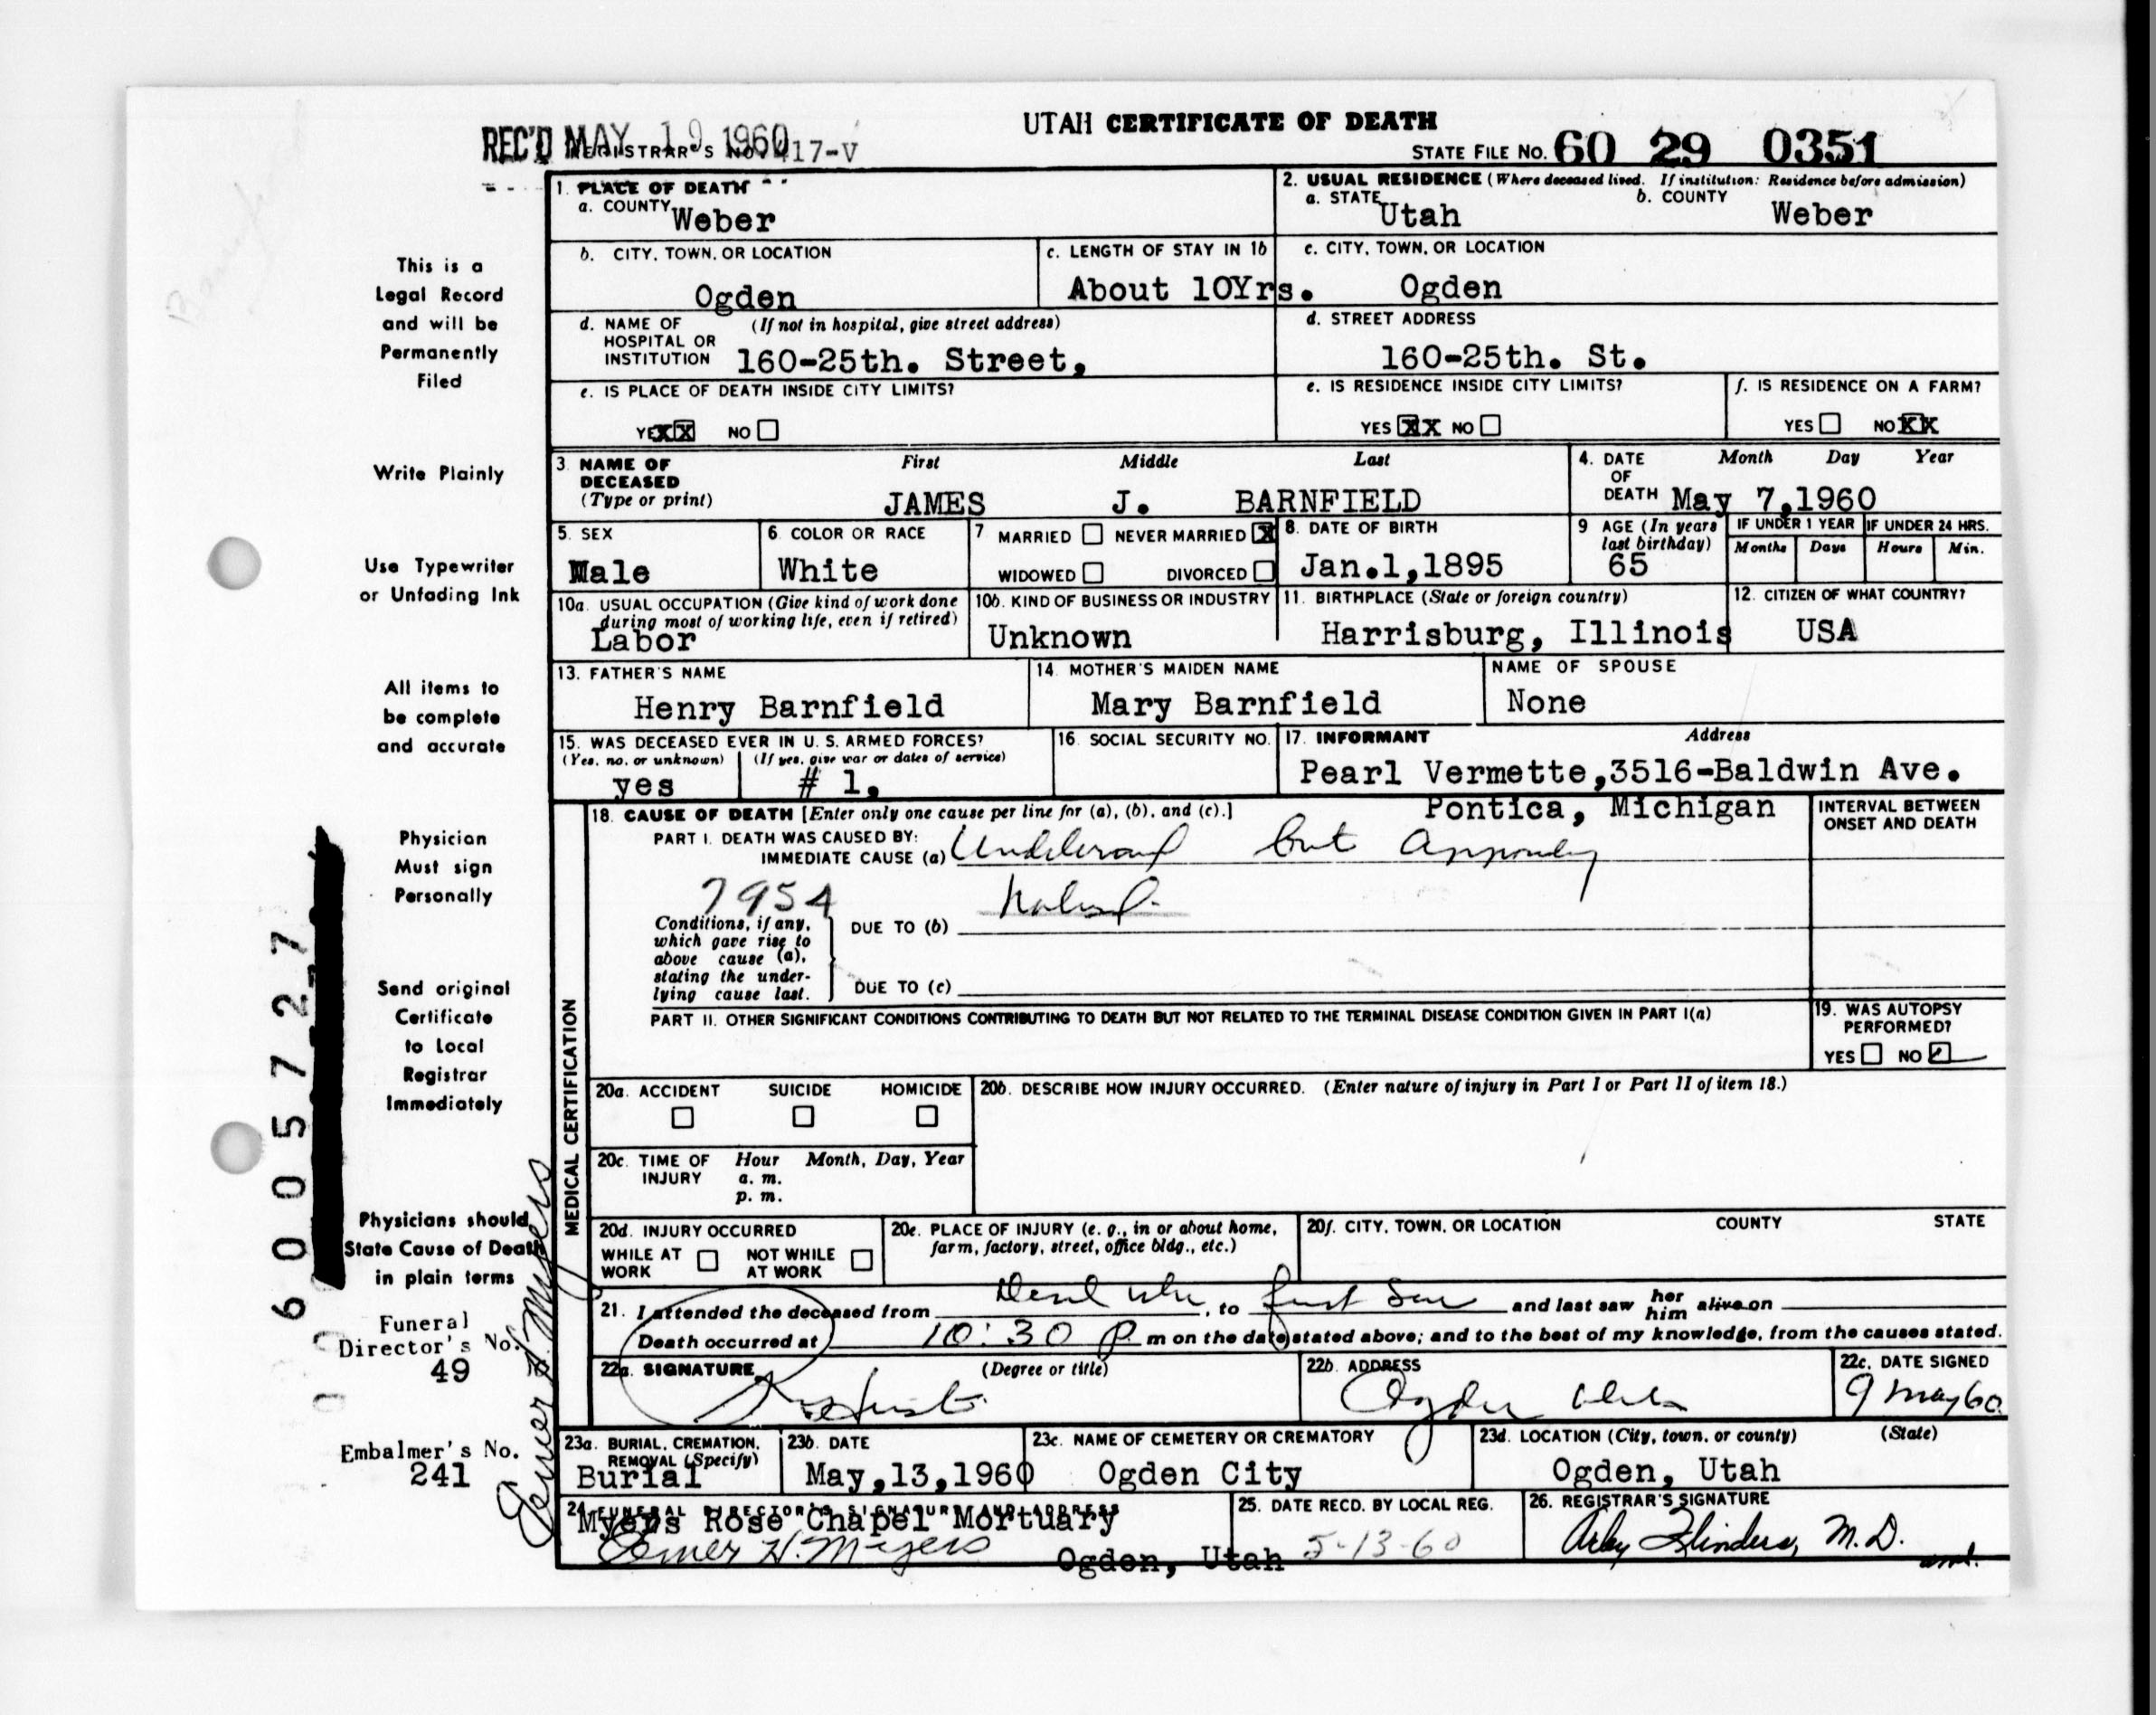 UTAH CERTIFICATE OF DEATH
REC'D MAY 19 1960
REGISTRAR'S NO. 417-V
STATE FILE NO. 60 29 0351
1. PLACE OF DEATH
a. COUNTY Weber
2. USUAL RESIDENCE (Where deceased lived. If institution: Residence before admission)
a. STATE Utah b. COUNTY Weber
b. CITY, TOWN, OR LOCATION Ogden
c. LENGTH OF STAY IN 1b About 10Yrs.
c. CITY, TOWN, OR LOCATION Ogden
d. NAME OF HOSPITAL OR INSTITUTION (If not in hospital, give street address) 160-25th. Street,
d. STREET ADDRESS 160-25th. St.
e. IS PLACE OF DEATH INSIDE CITY LIMITS? YES XX NO
e. IS RESIDENCE INSIDE CITY LIMITS? YES XX NO
f. IS RESIDENCE ON A FARM? YES NO XX
3. NAME OF DECEASED (Type or print) First Middle Last
JAMES J. BARNFIELD
4. DATE OF DEATH Month Day Year
May 7,1960
5. SEX Male
6. COLOR OR RACE White
7 MARRIED NEVER MARRIED X WIDOWED DIVORCED
8. DATE OF BIRTH Jan.1,1895
9 AGE (In years last birthday) 65
IF UNDER 1 YEAR Months Days
IF UNDER 24 HRS. Hours Min.
10a. USUAL OCCUPATION (Give kind of work done during most of working life, even if retired) Labor
10b. KIND OF BUSINESS OR INDUSTRY Unknown
11. BIRTHPLACE (State or foreign country) Harrisburg, Illinois
12. CITIZEN OF WHAT COUNTRY? USA
13. FATHER'S NAME Henry Barnfield
14. MOTHER'S MAIDEN NAME Mary Barnfield
NAME OF SPOUSE None
15. WAS DECEASED EVER IN U. S. ARMED FORCES?
(Yes, no, or unknown) yes
(If yes, give war or dates of service) # 1.
16. SOCIAL SECURITY NO.
17. INFORMANT Address
Pearl Vermette,3516-Baldwin Ave.
Pontica, Michigan
MEDICAL CERTIFICATION
18. CAUSE OF DEATH [Enter only one cause per line for (a), (b), and (c).]
INTERVAL BETWEEN ONSET AND DEATH
PART I. DEATH WAS CAUSED BY:
IMMEDIATE CAUSE (a) but
7954
Conditions, if any, which gave rise to above cause (a), stating the underlying cause last.
DUE TO (b)
DUE TO (c)
PART II. OTHER SIGNIFICANT CONDITIONS CONTRIBUTING TO DEATH BUT NOT RELATED TO THE TERMINAL DISEASE CONDITION GIVEN IN PART I(a)
19. WAS AUTOPSY PERFORMED? YES NO
20a. ACCIDENT SUICIDE HOMICIDE
20b. DESCRIBE HOW INJURY OCCURRED. (Enter nature of injury in Part I or Part II of item 18.)
20c. TIME OF INJURY Hour Month, Day, Year
a. m.
p. m.
20d. INJURY OCCURRED
WHILE AT WORK NOT WHILE AT WORK
20e. PLACE OF INJURY (e. g., in or about home, farm, factory, street, office bldg., etc.)
20f. CITY, TOWN, OR LOCATION COUNTY STATE
21. I attended the deceased from , to first and last saw her him alive on
Death occurred at 10:30 P m on the date stated above; and to the best of my knowledge, from the causes stated.
22a. SIGNATURE (Degree or title)
22b. ADDRESS Ogden Utah
22c. DATE SIGNED 9 May 60
23a. BURIAL, CREMATION, REMOVAL (Specify) Burial
23b. DATE May,13,1960
23c. NAME OF CEMETERY OR CREMATORY Ogden City
23d. LOCATION (City, town, or county) (State) Ogden, Utah
24. FUNERAL DIRECTOR'S SIGNATURE AND ADDRESS
Myers Rose Chapel Mortuary
H. Myers
Ogden, Utah
25. DATE RECD. BY LOCAL REG. 5-13-60
26. REGISTRAR'S SIGNATURE
Flinders, M.D.
This is a
Legal Record
and will be
Permanently
Filed
Write Plainly
Use Typewriter
or Unfading Ink
All items to
be complete
and accurate
Physician
Must sign
Personally
Send original
Certificate
to Local
Registrar
Immediately
Physicians should
State Cause of Death
in plain terms
Funeral
Director's No.
49
Embalmer's No.
241
H. Myers